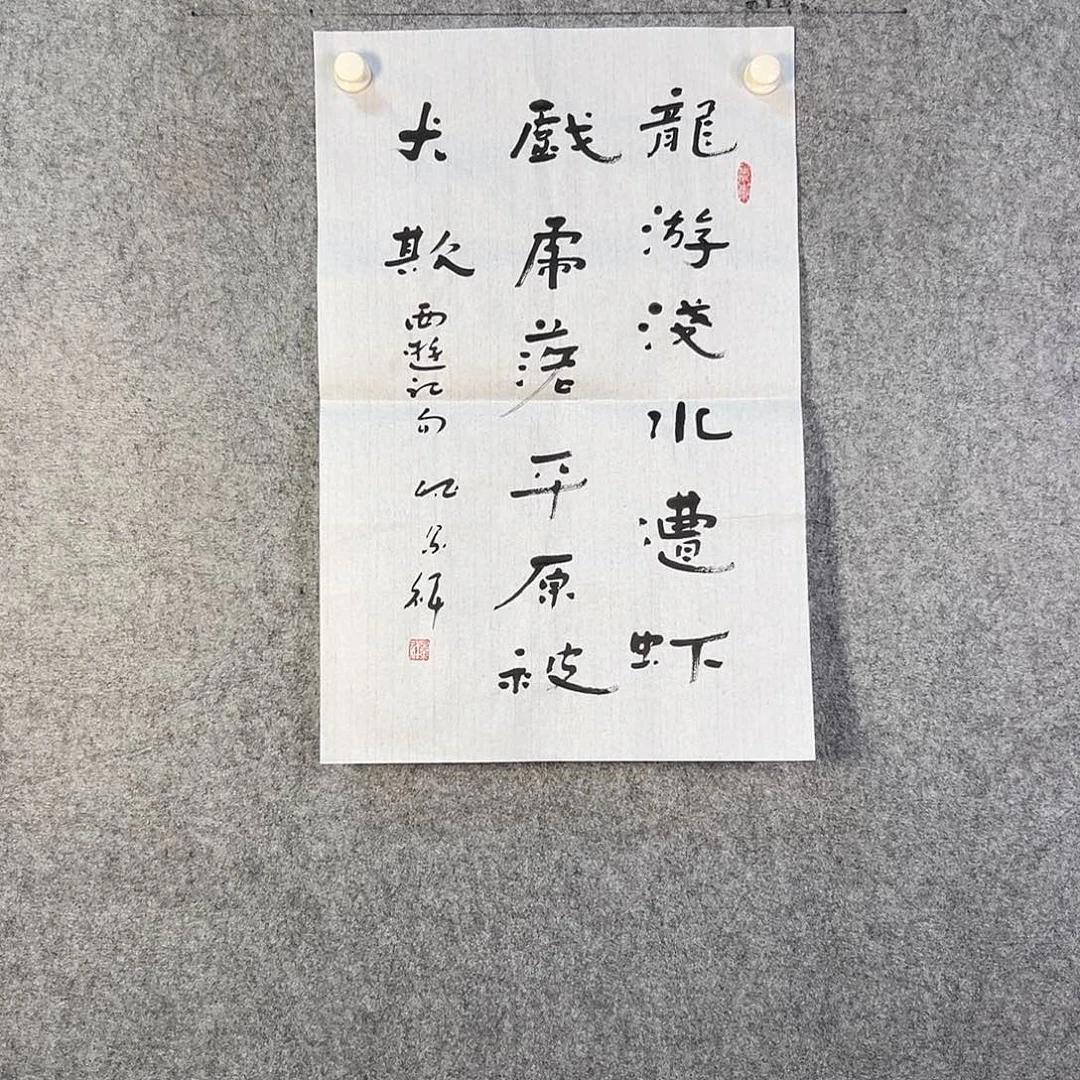 龍游淺水遭虾
戲虎落平原被
犬欺
西遊记句